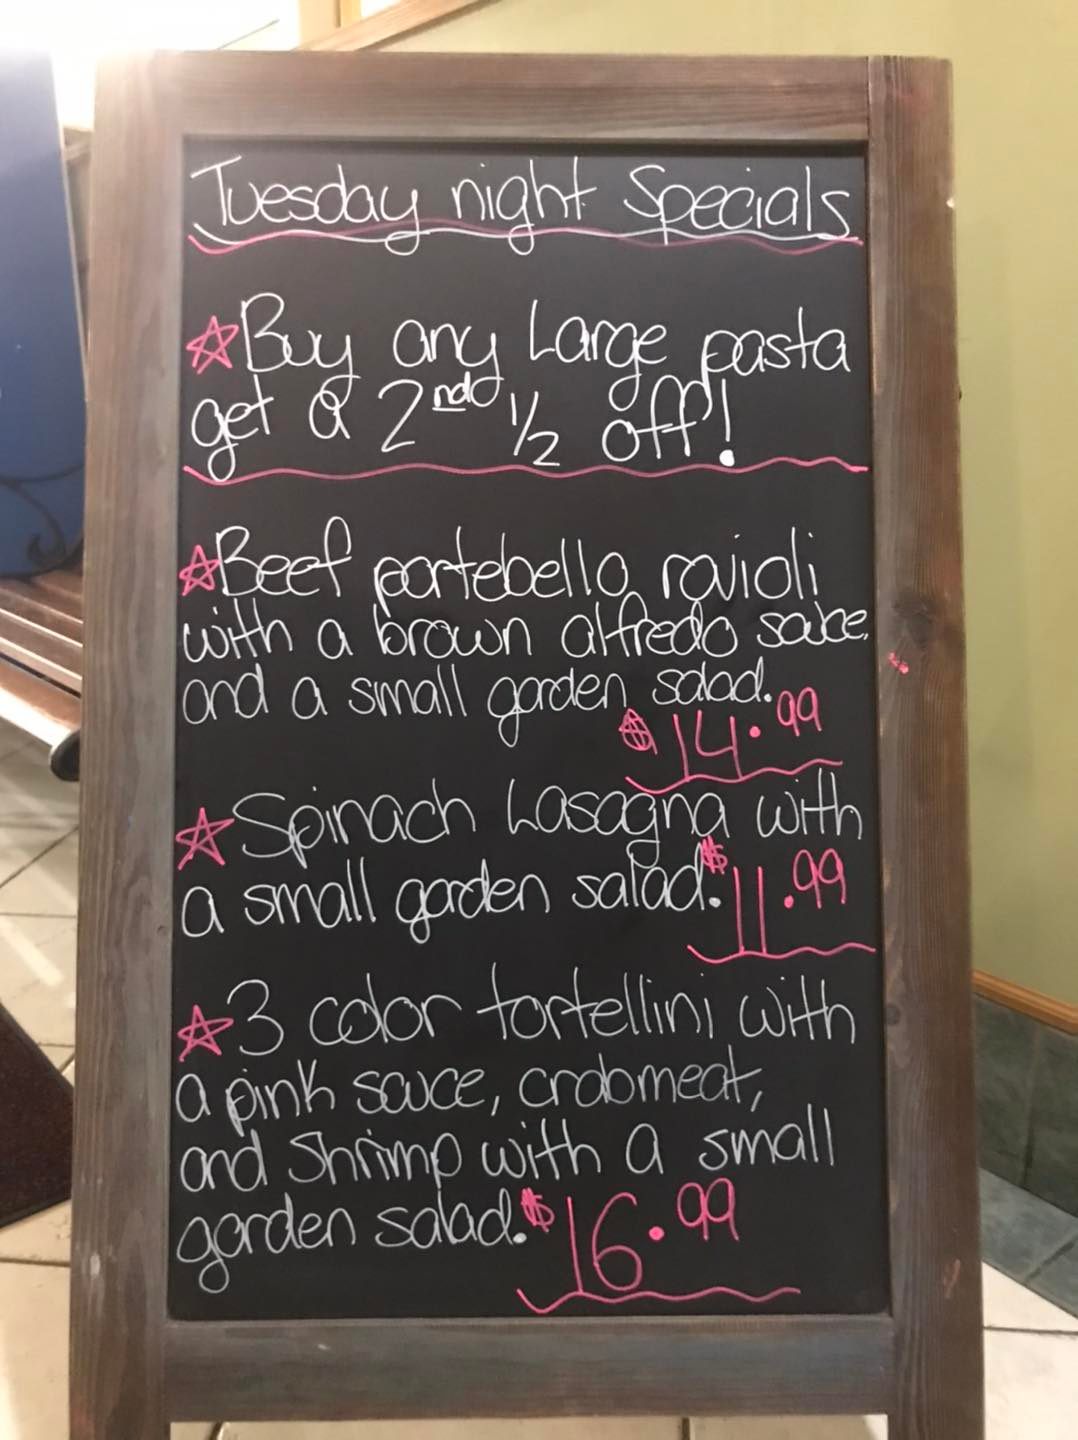 Tuesday night Specials
☆Buy any Large pasta
get a 2nd 1/2 off!
☆Beef portebello ravioli
with a brown alfredo sauce
and a small garden salad.
$14.99
☆Spinach Lasagna with
a small garden salad. $11.99
☆3 color tortellini with
a pink sauce, crabmeat,
and Shrimp with a small
garden salad. $16.99